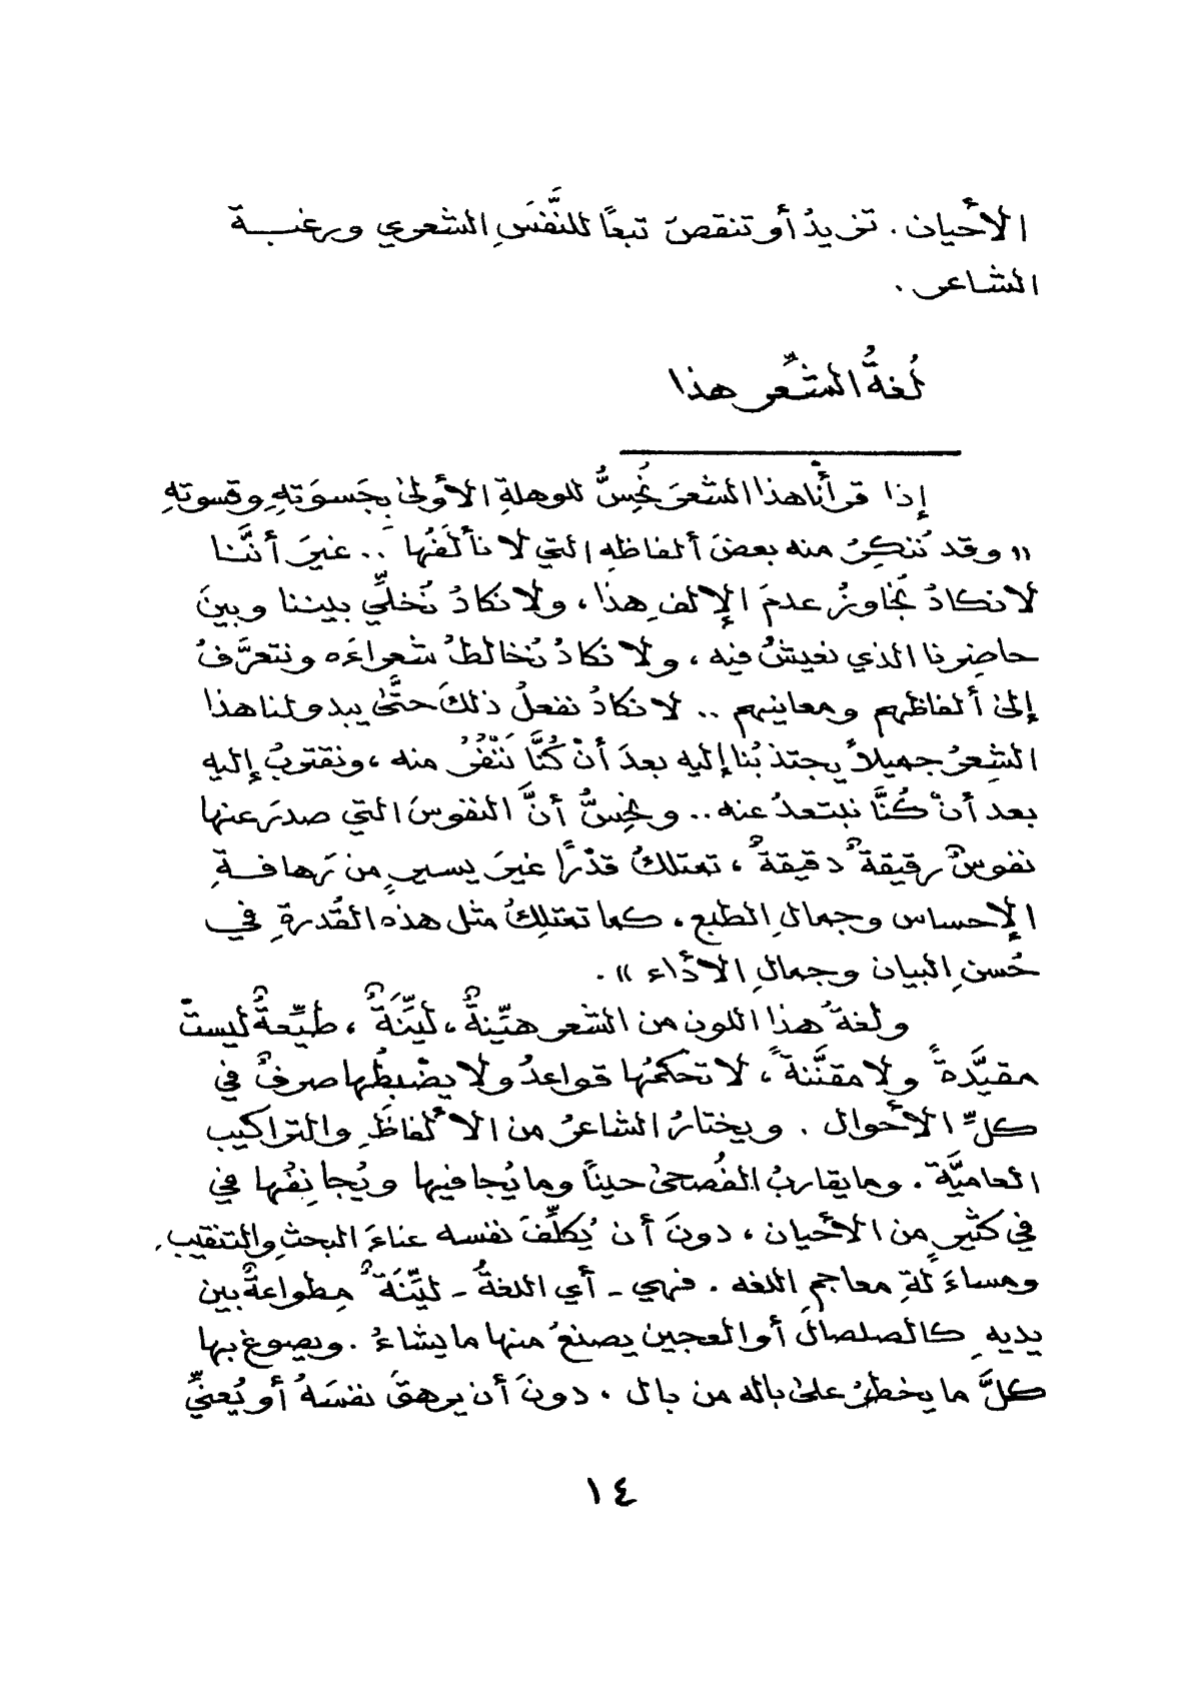 الأحيان . تزيدُ أو تنقصَ تبعًا للنَّفَسِ الشعري ورغبة
الشاعر .
لُغةُ الشِّعر هذا
إذا قرأْنا هذا الشعرَ نُحِسُّ للوهلةِ الأولىٰ بِجَسوَتهِ وقسوتهِ
« وقد نُنكِرُ منه بعضَ ألفاظهِ التي لا نألَفُها .. غيرَ أنَّنا
لا نكادُ نُجاوزُ عدمَ الإلفِ هذا ، ولا نكادُ نُخلِّي بيننا وبينَ
حاضِرنا الذي نعيشُ فيه ، ولا نكادُ نُخالطُ شعراءَه ونتعرَّفُ
إلىٰ ألفاظهم ومعانيهم .. لا نكادُ نفعلُ ذلكَ حتَّىٰ يبدو لنا هذا
الشِعرُ جميلاً يجتذبُنا إليه بعدَ أنْ كُنَّا نَنْفُرُ منه ، ونقتربُ إليه
بعد أنْ كُنَّا نبتعدُ عنه .. ونحِسُّ أنَّ النفوسَ التي صدرَ عنها
نفوسٌ رقيقةٌ دقيقةٌ ، تمتلكُ قدْرًا غيرَ يسيرٍ من رَهافةِ
الإحساس وجمالِ الطبع ، كما تمتلِكُ مثل هذه القُدرةِ في
حُسنِ البيان وجمالِ الأدْاء » .
ولغةُ هذا اللون من الشعر هيِّنةٌ ، ليِّنَةٌ ، طيِّعةٌ ليستْ
مقيَّدةً ولا مقنَّنةً ، لا تحْكمُها قواعدُ ولا يضْبطُها صرفٌ في
كلِّ الأحْوال . ويختارُ الشاعرُ من الألفاظِ والتراكيب
العاميَّة . وما يقاربُ الفُصحىٰ حينًا وما يُجافيها ويُجانِفُها في
في كثيرٍ من الأحْيان ، دونَ أن يُكلِّفَ نفسه عناءَ البحثِ والتنقيب .
ومساءَلةِ معاجمِ اللغه . فهي - أي اللغةُ - ليِّنَةٌ مِطواعةٌ بين
يديهِ كالصلصالَ أو العجين يصنعُ منها ما يشاءُ . ويصوغ بها
كلَّ ما يخطرُ علىٰ باله من بال . دونَ أن يرهقَ نفسَهُ أو يُعنيِّ
١٤